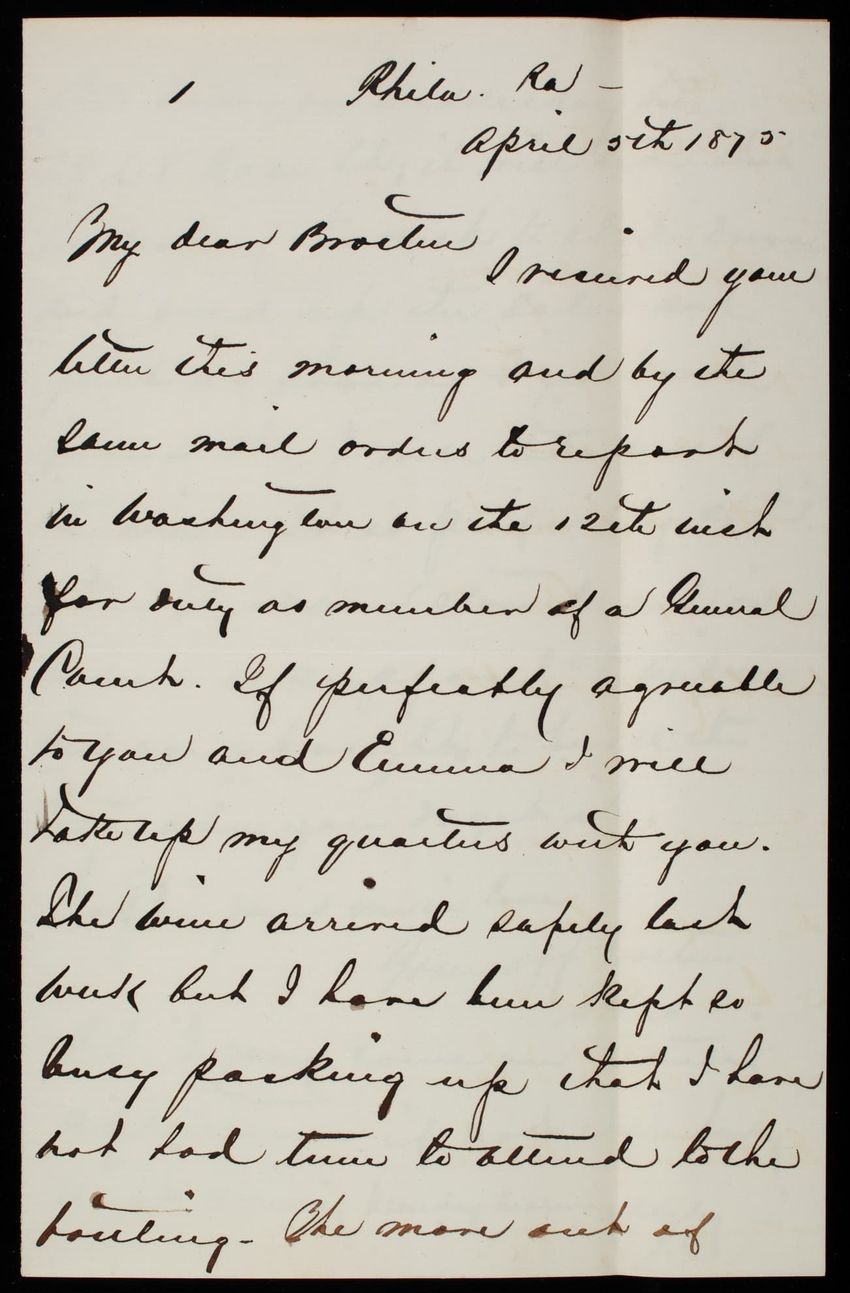 1 Phila. Pa -
April 5th 1875
My dear Brother
I received your
letter this morning and by the
same mail orders to report
in Washington on the 12th inst
for duty as member of a General
Court. If perfectly agreeable
to you and Emma I will
take up my quarters with you.
The wine arrived safely last
week but I have been kept so
busy packing up that I have
not had time to attend to the
bottling - The move out of